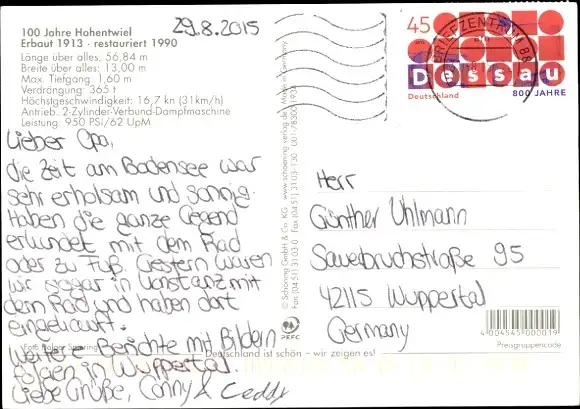 29.8.2015
100 Jahre Hohentwiel
Erbaut 1913 · restauriert 1990
Länge über alles, 56,84 m
Breite über alles; 13,00 m
Max. Tiefgang, 1,60 m
Verdrängung: 365 t
Höchstgeschwindigkeit: 16,7 kn (31km/h)
Antrieb: 2-Zylinder-Verbund-Dampfmaschine
Leistung: 950 PSi/62 UpM
Lieber Opa,
die Zeit am Bodensee war
sehr erholsam und sonnig.
Haben die ganze Gegend
erkundet mit dem Rad
oder zu Fuß. Gestern waren
wir sogar in Konstanz mit
dem Rad und haben dort
eingekauft.
Weitere Berichte mit Bildern
folgen in Wuppertal.
Liebe Grüße, Conny & Ceddy
Deutschland ist schön – wir zeigen es!
© Schöning GmbH & Co. KG
www.schoening-verlag.de
Made in Germany
PEFC
45
BRIEFZENTRUM 88
Dessau
Deutschland
800 JAHRE
Herr
Günther Uhlmann
Sauerbruchstraße 95
42115 Wuppertal
Germany
4 004545 000019
Preisgruppencode